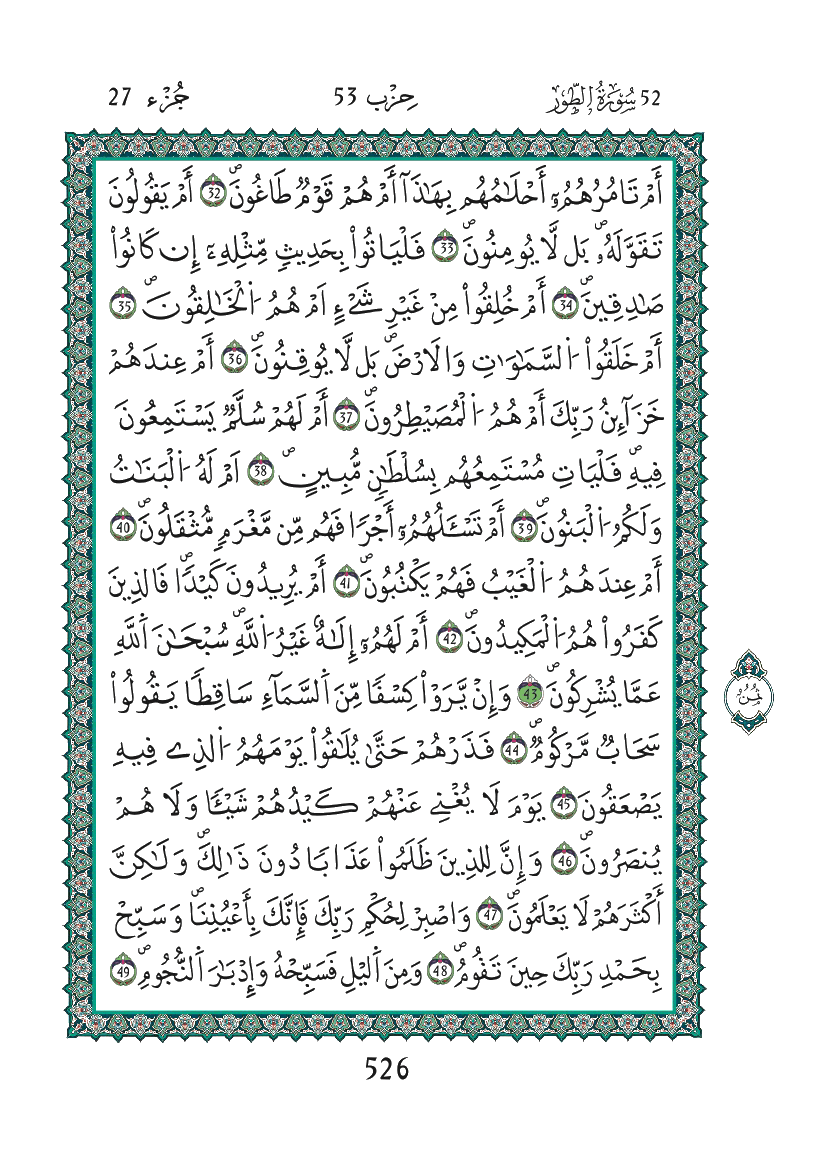 52 سُورَةُ الطُّورِ حِزْب 53 جُزْء 27
أَمْ تَامُرُهُمُۥٓ أَحْلَٰمُهُم بِهَٰذَآ أَمْ هُمْ قَوْمٞ طَاغُونَۖ 32 أَمْ يَقُولُونَ
تَقَوَّلَهُۥۖ بَل لَّا يُومِنُونَۖ 33 فَلْيَاتُواْ بِحَدِيثٖ مِّثْلِهِۦٓ إِن كَانُواْ
صَٰدِقِينَۖ 34 أَمْ خُلِقُواْ مِنْ غَيْرِ شَےْءٍ اَمْ هُمُ اُ۬لْخَٰلِقُونَۖ 35
أَمْ خَلَقُواْ اُ۬لسَّمَٰوَٰتِ وَالَارْضَۖ بَل لَّا يُوقِنُونَۖ 36 أَمْ عِندَهُمْ
خَزَآئِنُ رَبِّكَ أَمْ هُمُ اُ۬لْمُصَيْطِرُونَۖ 37 أَمْ لَهُمْ سُلَّمٞ يَسْتَمِعُونَ
فِيهِۖ فَلْيَاتِ مُسْتَمِعُهُم بِسُلْطَٰنٖ مُّبِينٍۖ 38 اَمْ لَهُ اُ۬لْبَنَٰتُ
وَلَكُمُ اُ۬لْبَنُونَۖ 39 أَمْ تَسْـَٔلُهُمُۥٓ أَجْرٗا فَهُم مِّن مَّغْرَمٖ مُّثْقَلُونَۖ 40
أَمْ عِندَهُمُ اُ۬لْغَيْبُ فَهُمْ يَكْتُبُونَۖ 41 أَمْ يُرِيدُونَ كَيْدٗاۖ فَالذِينَ
كَفَرُواْ هُمُ اُ۬لْمَكِيدُونَۖ 42 أَمْ لَهُمُۥٓ إِلَٰهٌ غَيْرُ اُ۬للَّهِۖ سُبْحَٰنَ اَ۬للَّهِ
عَمَّا يُشْرِكُونَۖ 43 وَإِنْ يَّرَوْاْ كِسْفٗا مِّنَ اَ۬لسَّمَآءِ سَاقِطٗا يَقُولُواْ
سَحَابٞ مَّرْكُومٞۖ 44 فَذَرْهُمْ حَتَّىٰ يُلَٰقُواْ يَوْمَهُمُ اُ۬لذِے فِيهِ
يَصْعَقُونَۖ 45 يَوْمَ لَا يُغْنِے عَنْهُمْ كَيْدُهُمْ شَيْـٔٗا وَلَا هُمْ
يُنصَرُونَۖ 46 وَإِنَّ لِلذِينَ ظَلَمُواْ عَذَابٗا دُونَ ذَٰلِكَۖ وَلَٰكِنَّ
أَكْثَرَهُمْ لَا يَعْلَمُونَۖ 47 وَاصْبِرْ لِحُكْمِ رَبِّكَ فَإِنَّكَ بِأَعْيُنِنَاۖ وَسَبِّحْ
بِحَمْدِ رَبِّكَ حِينَ تَقُومُۖ 48 وَمِنَ اَ۬ليْلِ فَسَبِّحْهُ وَإِدْبَٰرَ اَ۬لنُّجُومِۖ 49
ثُمُنُ
526